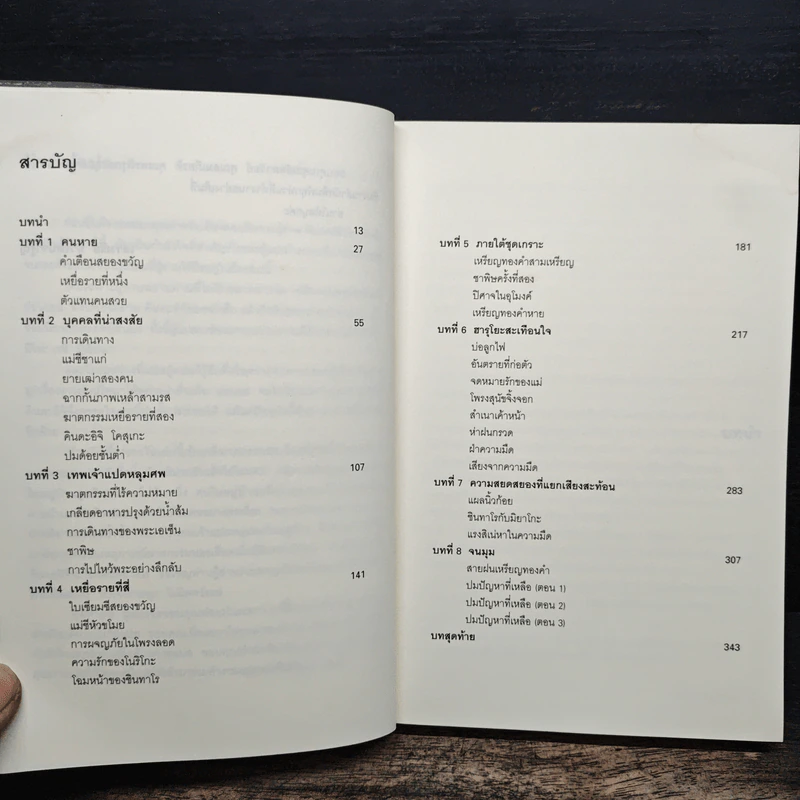 สารบัญ
บทนำ 13
บทที่ 1 คนหาย 27
คำเตือนสยองขวัญ
เหยื่อรายที่หนึ่ง
ตัวแทนคนสวย
บทที่ 2 บุคคลที่น่าสงสัย 55
การเดินทาง
แม่ชีชาแก่
ยายเฒ่าสองคน
ฉากกั้นภาพเหล้าสามรส
ฆาตกรรมเหยื่อรายที่สอง
คินดะอิจิ โคสุเกะ
ปมด้อยชั้นต่ำ
บทที่ 3 เทพเจ้าแปดหลุมศพ 107
ฆาตกรรมที่ไร้ความหมาย
เกลียดอาหารปรุงด้วยน้ำส้ม
การเดินทางของพระเอเซ็น
ชาพิษ
การไปไหว้พระอย่างลึกลับ
บทที่ 4 เหยื่อรายที่สี่ 141
ใบเซียมซีสยองขวัญ
แม่ชีหัวขโมย
การผจญภัยในโพรงลอด
ความรักของโนริโกะ
โฉมหน้าของชินทาโร
บทที่ 5 ภายใต้ชุดเกราะ 181
เหรียญทองคำสามเหรียญ
ชาพิษครั้งที่สอง
ปิศาจในอุโมงค์
เหรียญทองคำหาย
บทที่ 6 ฮารุโยะสะเทือนใจ 217
บ่อลูกไฟ
อันตรายที่ก่อตัว
จดหมายรักของแม่
โพรงสุนัขจิ้งจอก
สำเนาเค้าหน้า
ห่าฝนกรวด
ฝ่าความมืด
เสียงจากความมืด
บทที่ 7 ความสยดสยองที่แยกเสียงสะท้อน 283
แผลนิ้วก้อย
ชินทาโรกับมิยาโกะ
แรงสิเน่หาในความมืด
บทที่ 8 จนมุม 307
สายฝนเหรียญทองคำ
ปมปัญหาที่เหลือ (ตอน 1)
ปมปัญหาที่เหลือ (ตอน 2)
ปมปัญหาที่เหลือ (ตอน 3)
บทสุดท้าย 343